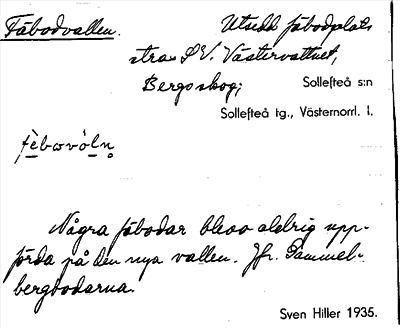 Fäbodvallen. Utsedd fäbodplats
strax S V. Västervattnet,
Bergoskog; Sollefteå s:n
Sollefteå tg., Västernorrl. l.
fèbovòln
Några fäbodar blevo aldrig upp-
förda på den nya vallen. Jfr. Gammel-
bergbodarna.
Sven Hiller 1935.